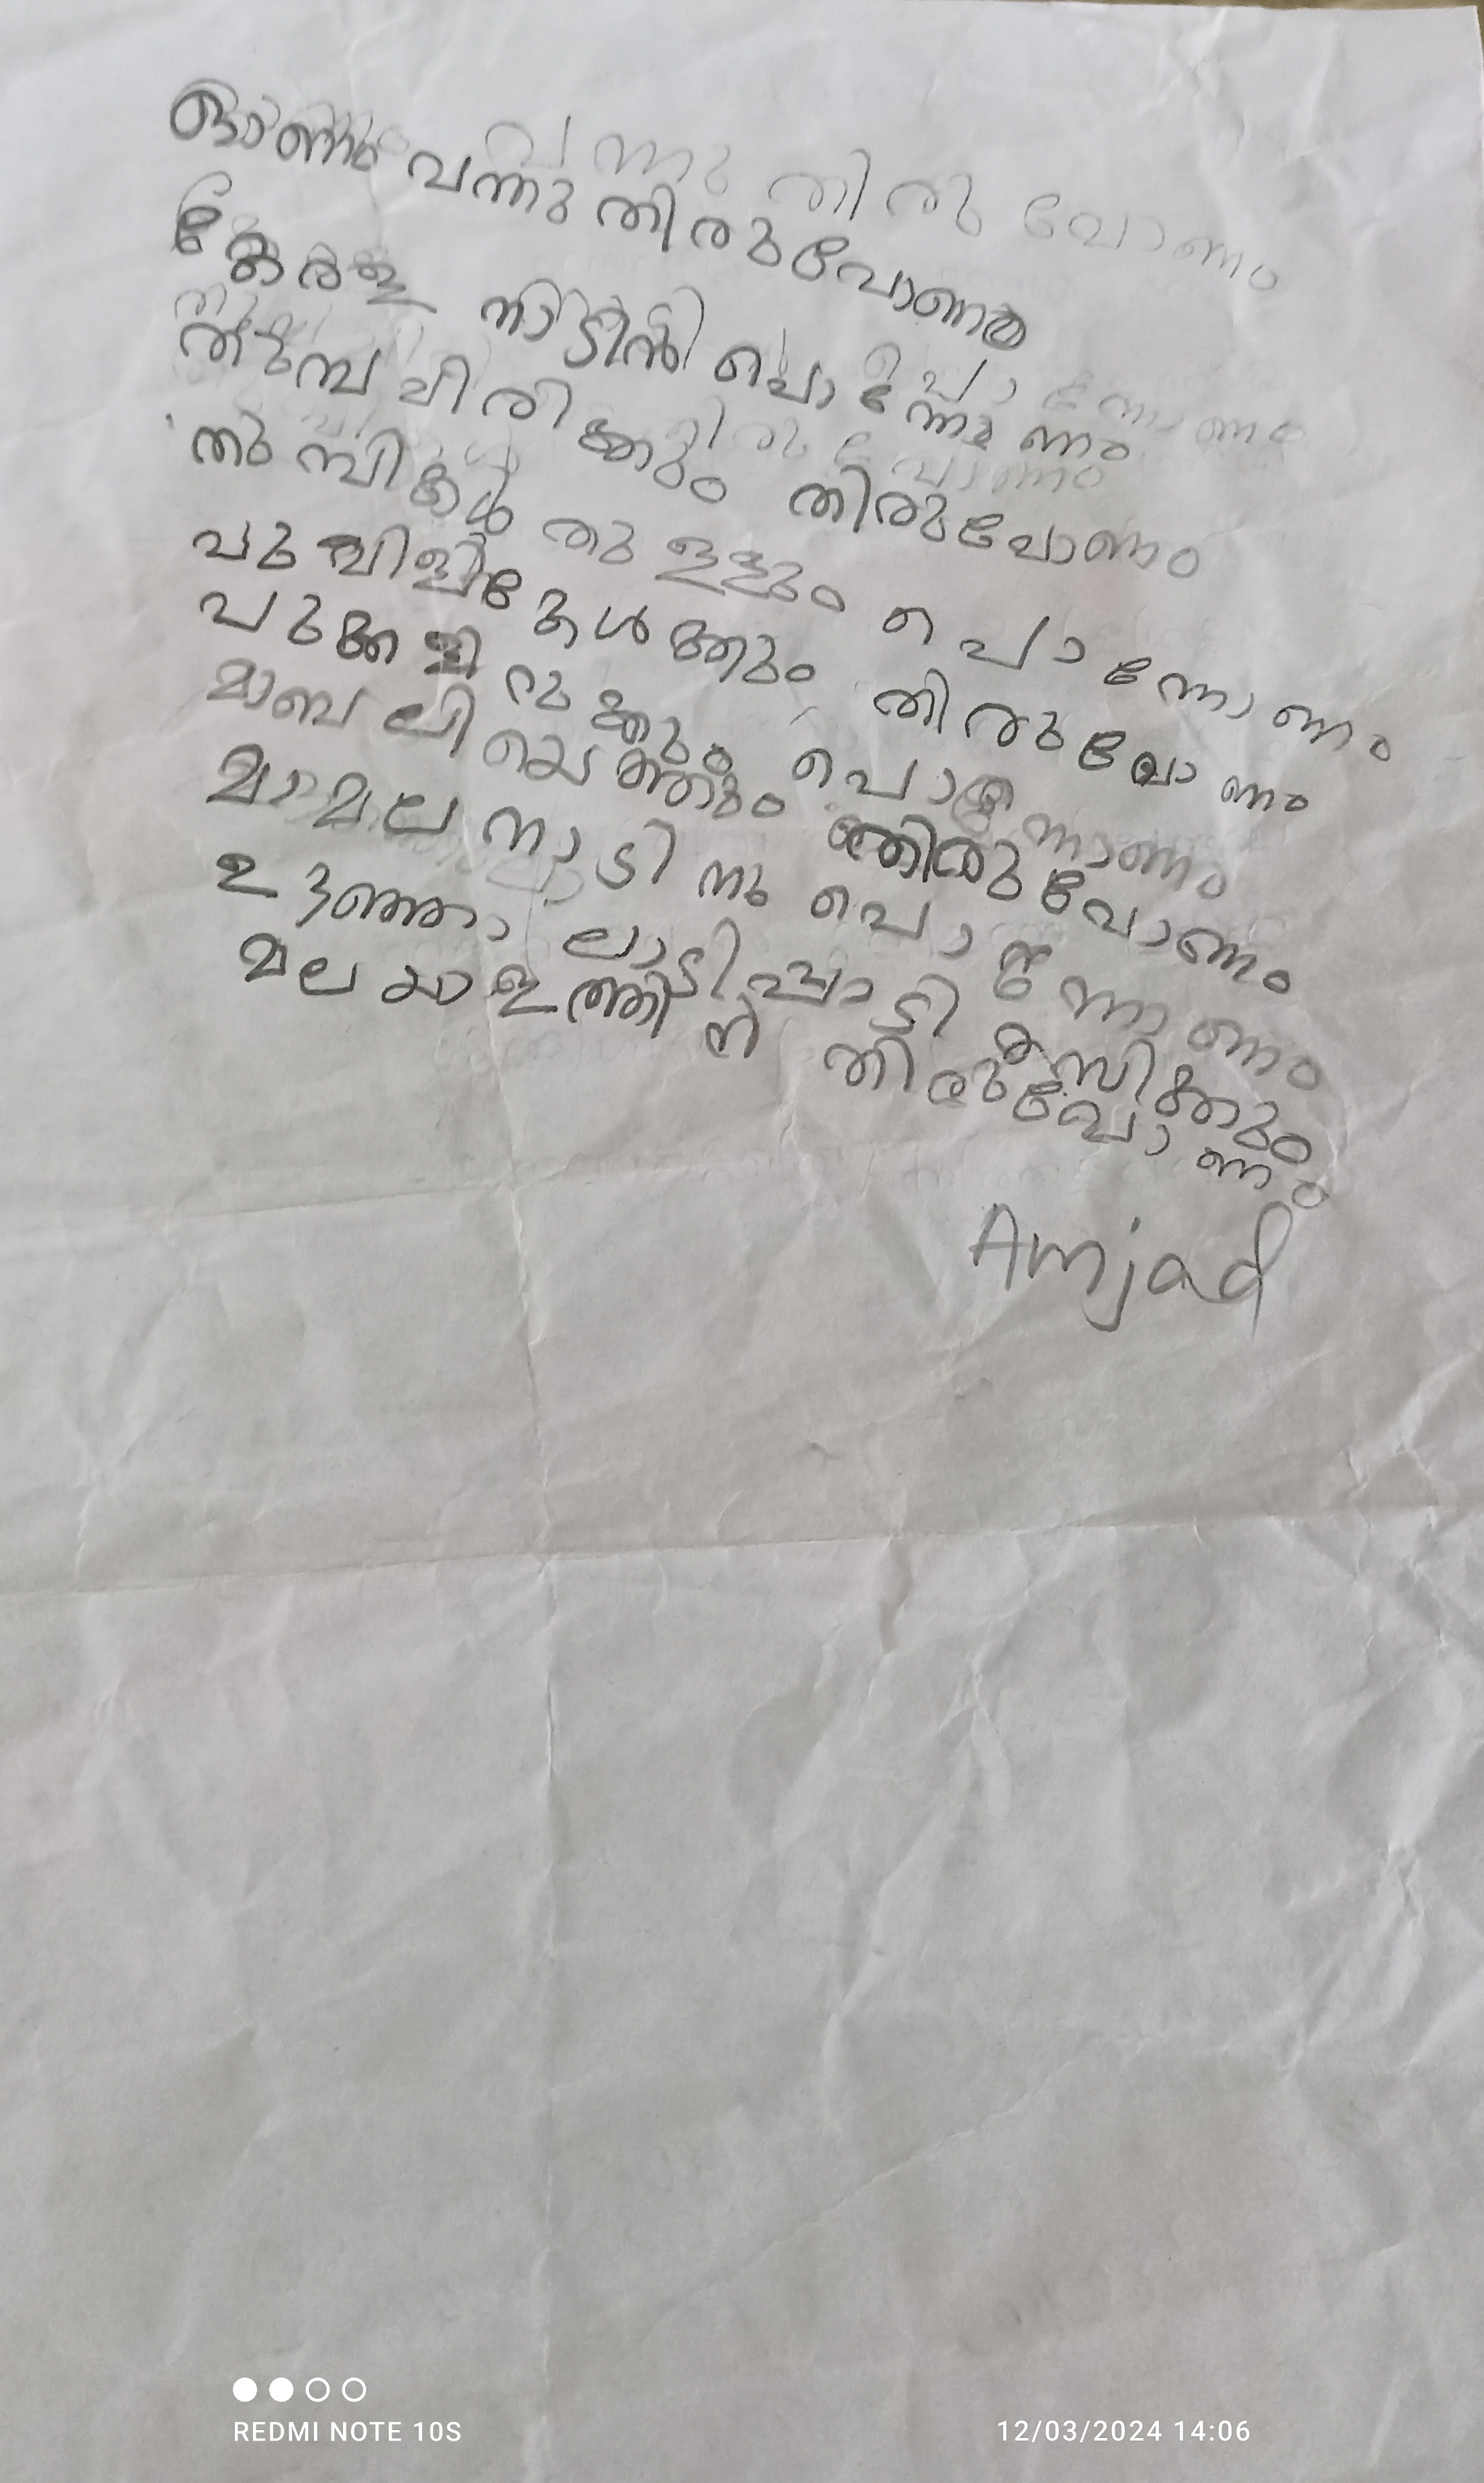 ഓണം വന്നു തിരുവോണം
കേരള നാടിൻ പൊന്നോണം
തുമ്പ വിരിക്കും തിരുവോണം
തുമ്പികൾ തുള്ളും പൊന്നോണം
പുവിളികേൾക്കും തിരുവോണം
പുക്കളിറുക്കും പൊന്നോണം
മാബലിയെത്തും തിരുവോണം
മാമല നാടിനു പൊന്നോണം
ഉഊഞ്ഞാലാടിപ്പാടി രസിക്കും
മലയാളത്തിന് തിരുവോണം
Amjad
REDMI NOTE 10S
12/03/2024 14:06